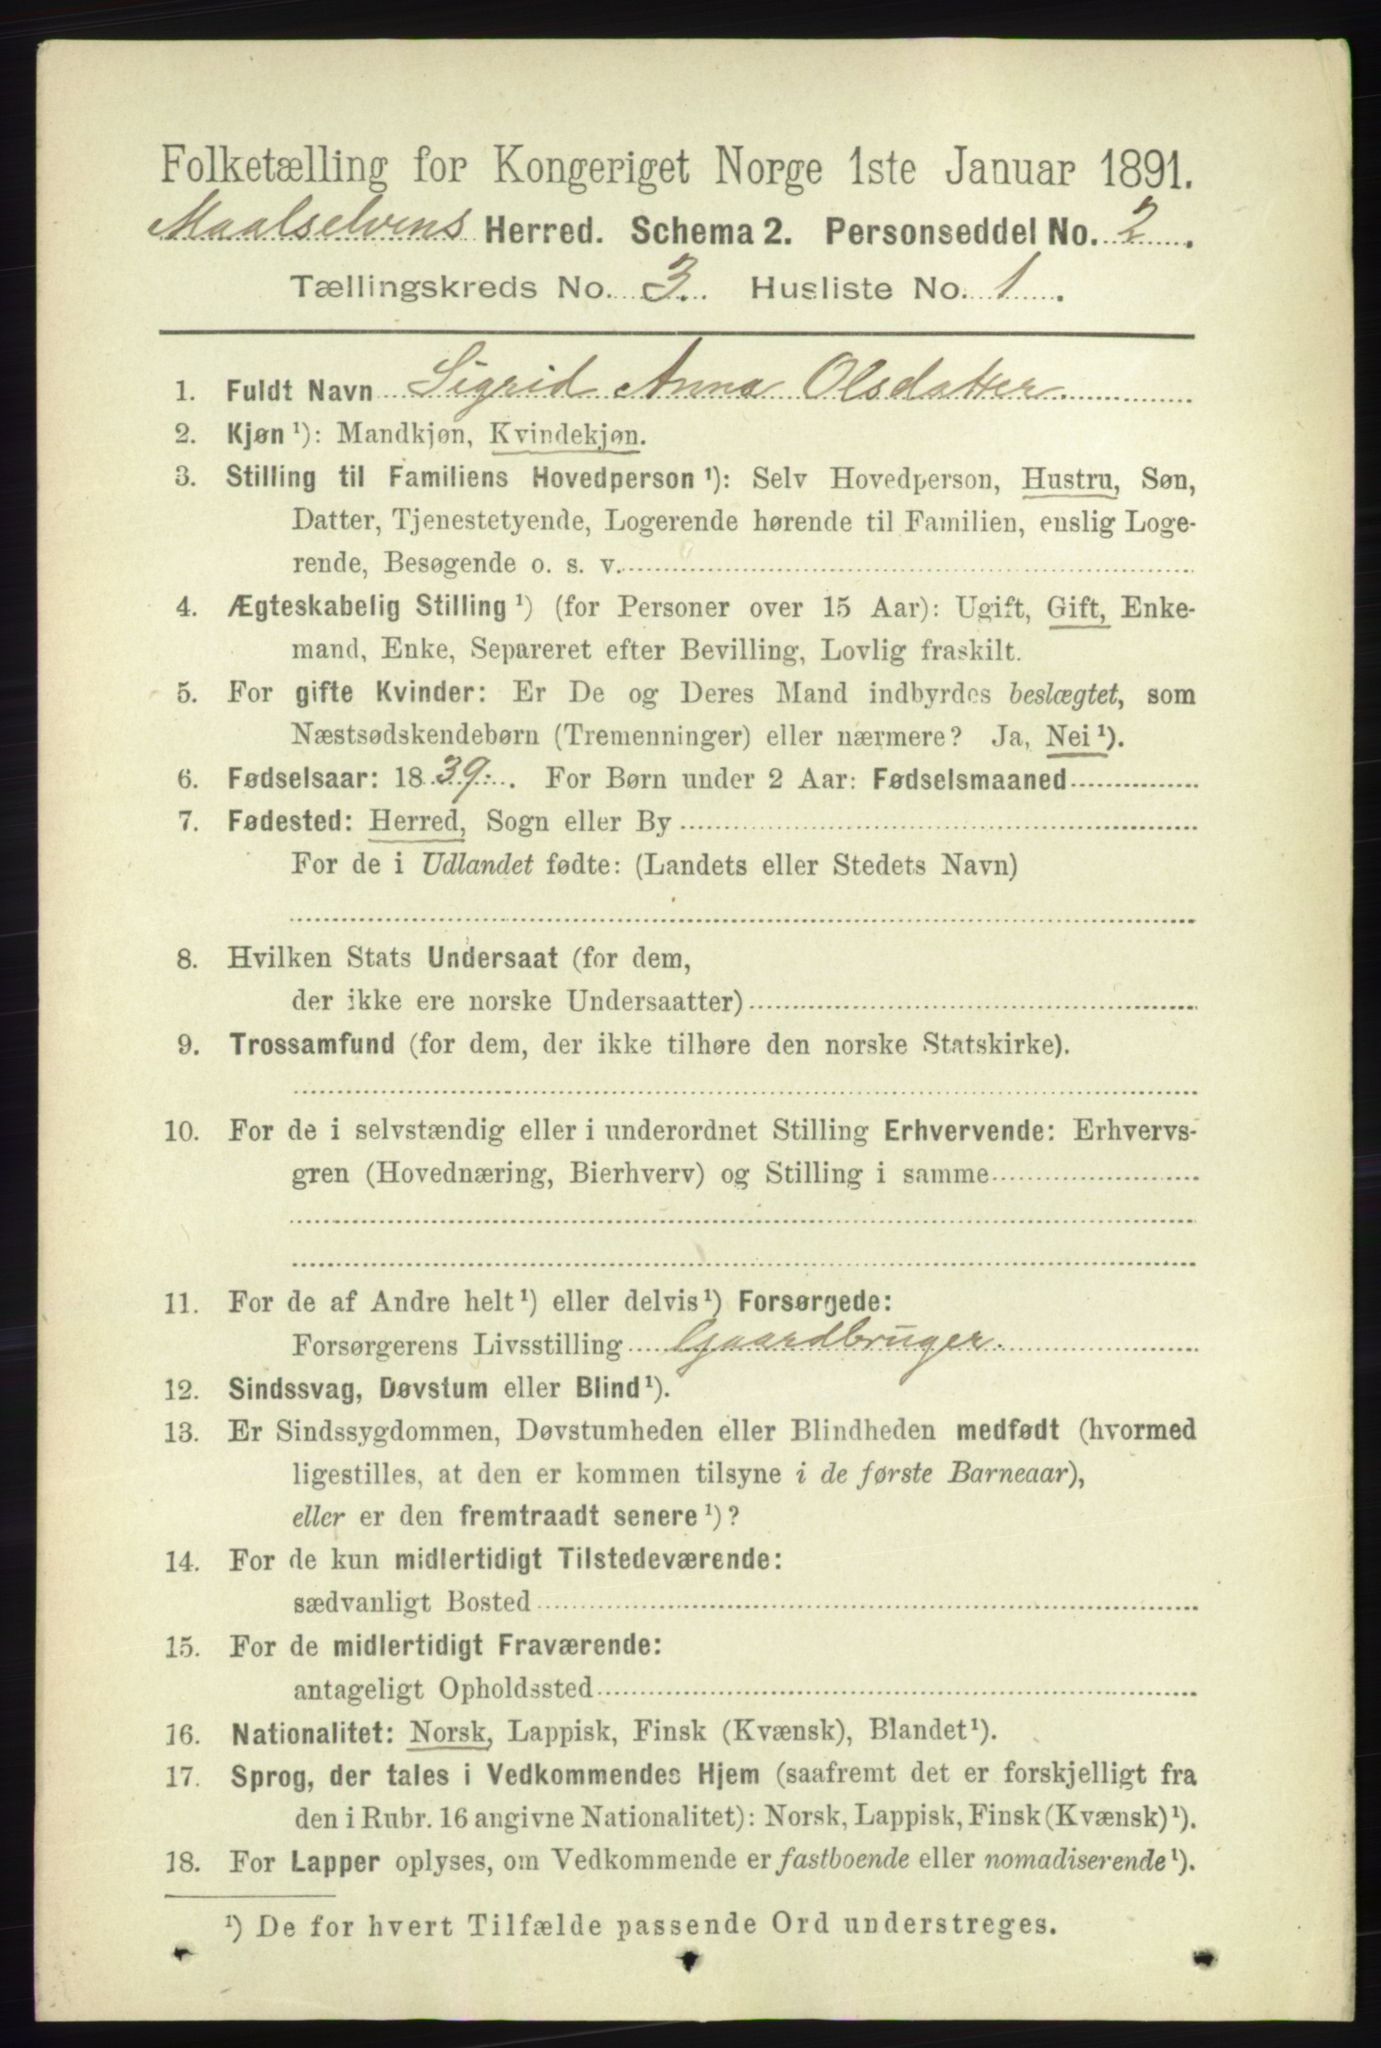 Folketælling for Kongeriget Norge 1ste Januar 1891.
Maalselvens Herred. Schema 2. Personseddel No. 2.
Tællingskreds No. 3. Husliste No. 1.
1. Fuldt Navn Sigrid Anna Olsdatter
2. Kjøn ¹): Mandkjøn, Kvindekjøn.
3. Stilling til Familiens Hovedperson ¹): Selv Hovedperson, Hustru, Søn,
Datter, Tjenestetyende, Logerende hørende til Familien, enslig Loge-
rende, Besøgende o. s. v.
4. Ægteskabelig Stilling ¹) (for Personer over 15 Aar): Ugift, Gift, Enke-
mand, Enke, Separeret efter Bevilling, Lovlig fraskilt.
5. For gifte Kvinder: Er De og Deres Mand indbyrdes beslægtet, som
Næstsødskendebørn (Tremenninger) eller nærmere? Ja, Nei ¹).
6. Fødselsaar: 1839. For Børn under 2 Aar: Fødselsmaaned
7. Fødested: Herred, Sogn eller By
For de i Udlandet fødte: (Landets eller Stedets Navn)
8. Hvilken Stats Undersaat (for dem,
der ikke ere norske Undersaatter)
9. Trossamfund (for dem, der ikke tilhøre den norske Statskirke).
10. For de i selvstændig eller i underordnet Stilling Erhvervende: Erhvervs-
gren (Hovednæring, Bierhverv) og Stilling i samme
11. For de af Andre helt ¹) eller delvis ¹) Forsørgede:
Forsørgerens Livsstilling Gaardbruger.
12. Sindssvag, Døvstum eller Blind ¹).
13. Er Sindssygdommen, Døvstumheden eller Blindheden medfødt (hvormed
ligestilles, at den er kommen tilsyne i de første Barneaar),
eller er den fremtraadt senere ¹)?
14. For de kun midlertidigt Tilstedeværende:
sædvanligt Bosted
15. For de midlertidigt Fraværende:
antageligt Opholdssted
16. Nationalitet: Norsk, Lappisk, Finsk (Kvænsk), Blandet ¹).
17. Sprog, der tales i Vedkommendes Hjem (saafremt det er forskjelligt fra
den i Rubr. 16 angivne Nationalitet): Norsk, Lappisk, Finsk (Kvænsk) ¹).
18. For Lapper oplyses, om Vedkommende er fastboende eller nomadiserende ¹).
¹) De for hvert Tilfælde passende Ord understreges.